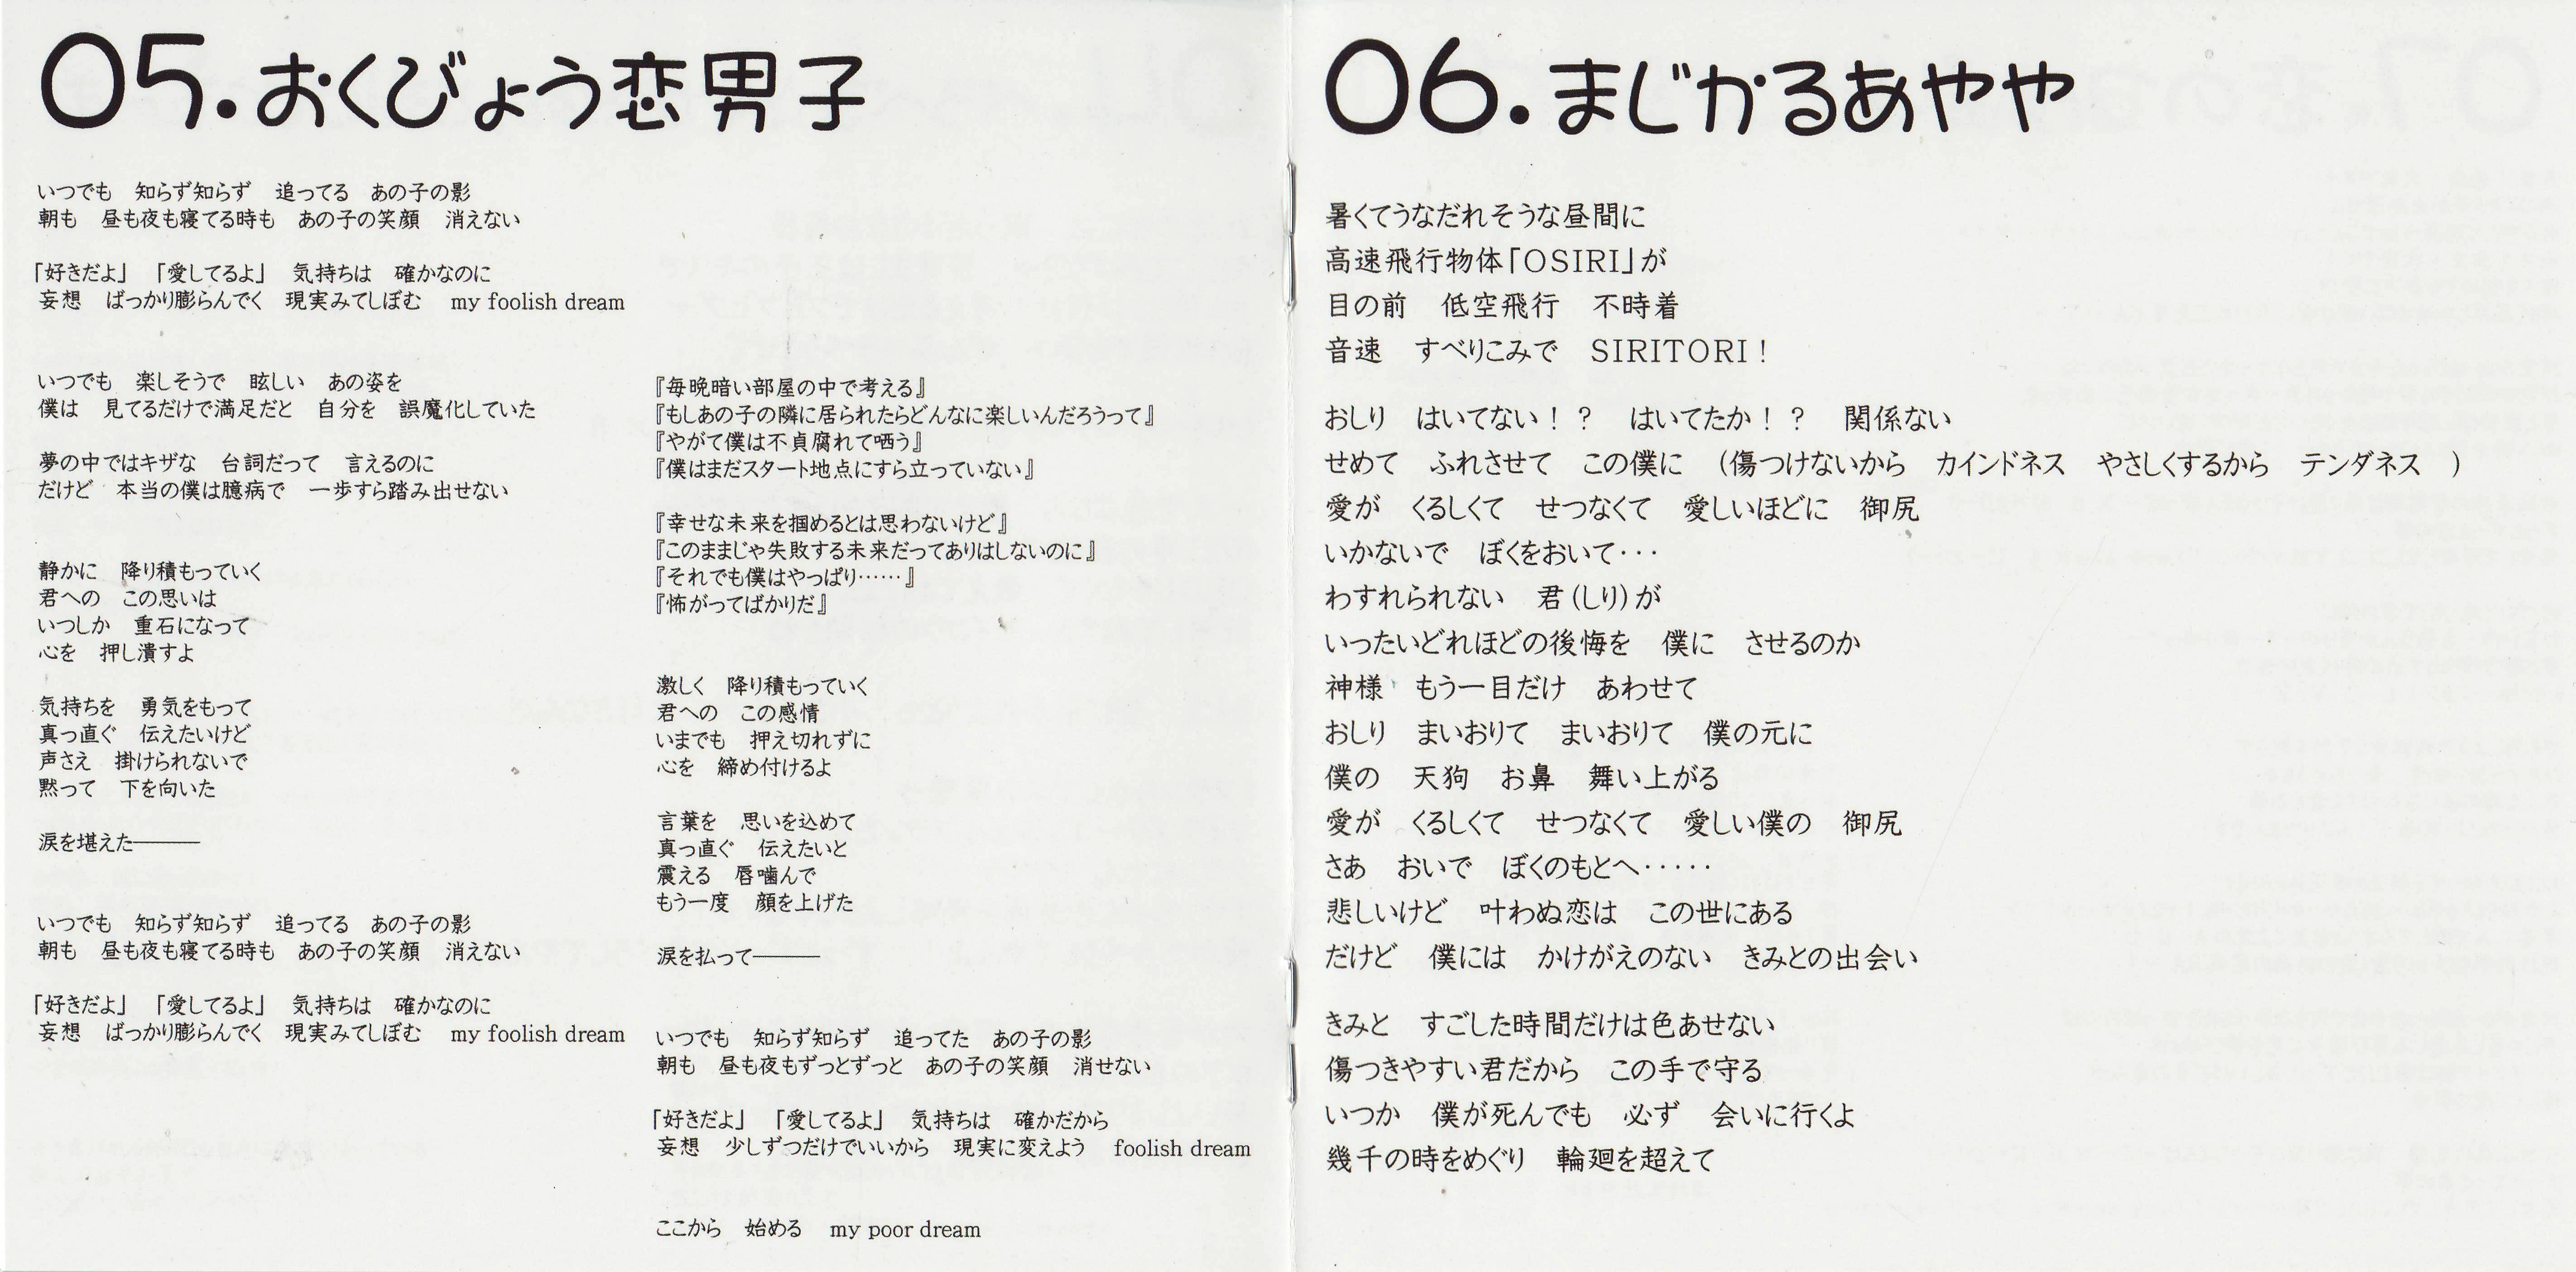 05.おくびょう恋男子
いつでも　知らず知らず　追ってる　あの子の影
朝も　昼も夜も寝てる時も　あの子の笑顔　消えない
「好きだよ」　「愛してるよ」　気持ちは　確かなのに
妄想　ばっかり膨らんでく　現実みてしぼむ　my foolish dream
いつでも　楽しそうで　眩しい　あの姿を
僕は　見てるだけで満足だと　自分を　誤魔化していた
夢の中ではキザな　台詞だって　言えるのに
だけど　本当の僕は臆病で　一歩すら踏み出せない
静かに　降り積もっていく
君への　この思いは
いつしか　重石になって
心を　押し潰すよ
気持ちを　勇気をもって
真っ直ぐ　伝えたいけど
声さえ　掛けられないで
黙って　下を向いた
涙を堪えた―――
いつでも　知らず知らず　追ってる　あの子の影
朝も　昼も夜も寝てる時も　あの子の笑顔　消えない
「好きだよ」　「愛してるよ」　気持ちは　確かなのに
妄想　ばっかり膨らんでく　現実みてしぼむ　my foolish dream
『毎晩暗い部屋の中で考える』
『もしあの子の隣に居られたらどんなに楽しいんだろうって』
『やがて僕は不貞腐れて哂う』
『僕はまだスタート地点にすら立っていない』
『幸せな未来を掴めるとは思わないけど』
『このままじゃ失敗する未来だってありはしないのに』
『それでも僕はやっぱり……』
『怖がってばかりだ』
激しく　降り積もっていく
君への　この感情
いまでも　押え切れずに
心を　締め付けるよ
言葉を　思いを込めて
真っ直ぐ　伝えたいと
震える　唇噛んで
もう一度　顔を上げた
涙を払って―――
いつでも　知らず知らず　追ってた　あの子の影
朝も　昼も夜もずっとずっと　あの子の笑顔　消せない
「好きだよ」　「愛してるよ」　気持ちは　確かだから
妄想　少しずつだけでいいから　現実に変えよう　foolish dream
ここから　始める　my poor dream
06.まじかるあやや
暑くてうなだれそうな昼間に
高速飛行物体「OSIRI」が
目の前　低空飛行　不時着
音速　すべりこみで　SIRITORI！
おしり　はいてない！？　はいてたか！？　関係ない
せめて　ふれさせて　この僕に　（傷つけないから　カインドネス　やさしくするから　テンダネス　）
愛が　くるしくて　せつなくて　愛しいほどに　御尻
いかないで　ぼくをおいて･･･
わすれられない　君（しり）が
いったいどれほどの後悔を　僕に　させるのか
神様　もう一目だけ　あわせて
おしり　まいおりて　まいおりて　僕の元に
僕の　天狗　お鼻　舞い上がる
愛が　くるしくて　せつなくて　愛しい僕の　御尻
さあ　おいで　ぼくのもとへ･････
悲しいけど　叶わぬ恋は　この世にある
だけど　僕には　かけがえのない　きみとの出会い
きみと　すごした時間だけは色あせない
傷つきやすい君だから　この手で守る
いつか　僕が死んでも　必ず　会いに行くよ
幾千の時をめぐり　輪廻を超えて